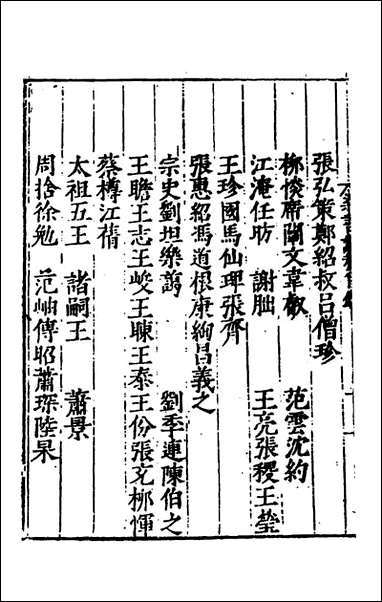 張弘策鄭紹叔吕僧珍
柳惔席闡文韋叡　范雲沈約
江淹任昉　謝朏　王亮張稷王瑩
王珍國馬仙琕張齊
張惠紹馮道根康絢昌義之
宗史劉坦樂藹　劉季連陳伯之
王瞻王志王峻王暕王泰王份張充柳惲
蔡樽江蒨
太祖五王　諸嗣王　蕭景
周捨徐勉　范岫傅昭蕭琛陸杲